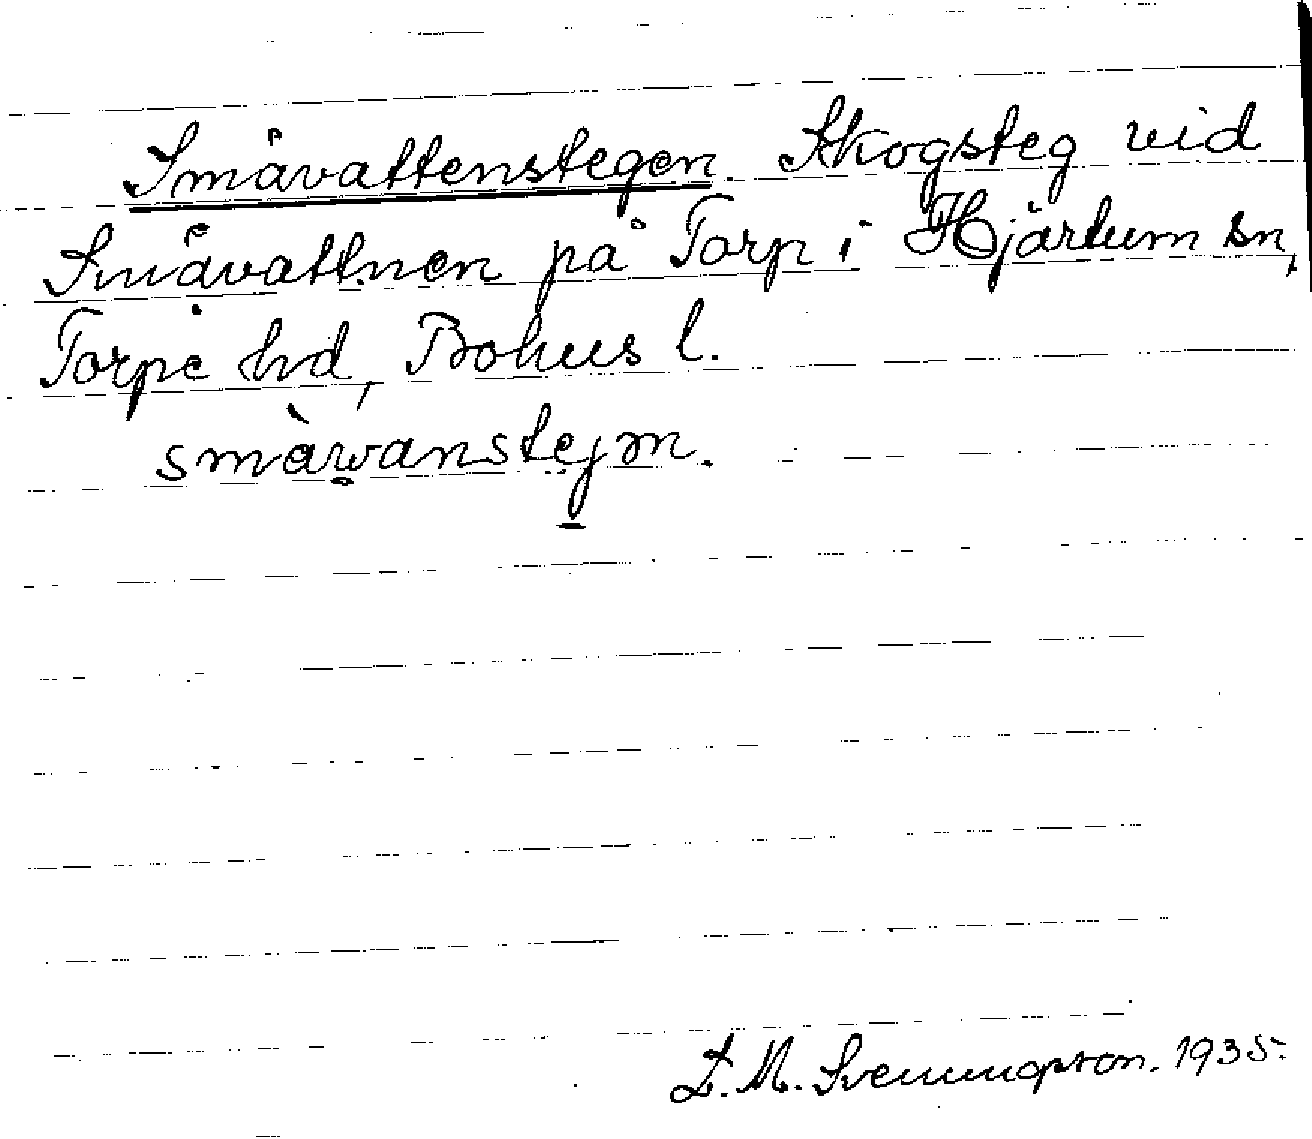 Småvattenstegen. Skogsteg vid
Småvattnen på Torp i Hjärtum sn,
Torpe hd, Bohus l.
småwanstejm.
D. M. Svenungsson. 1935.